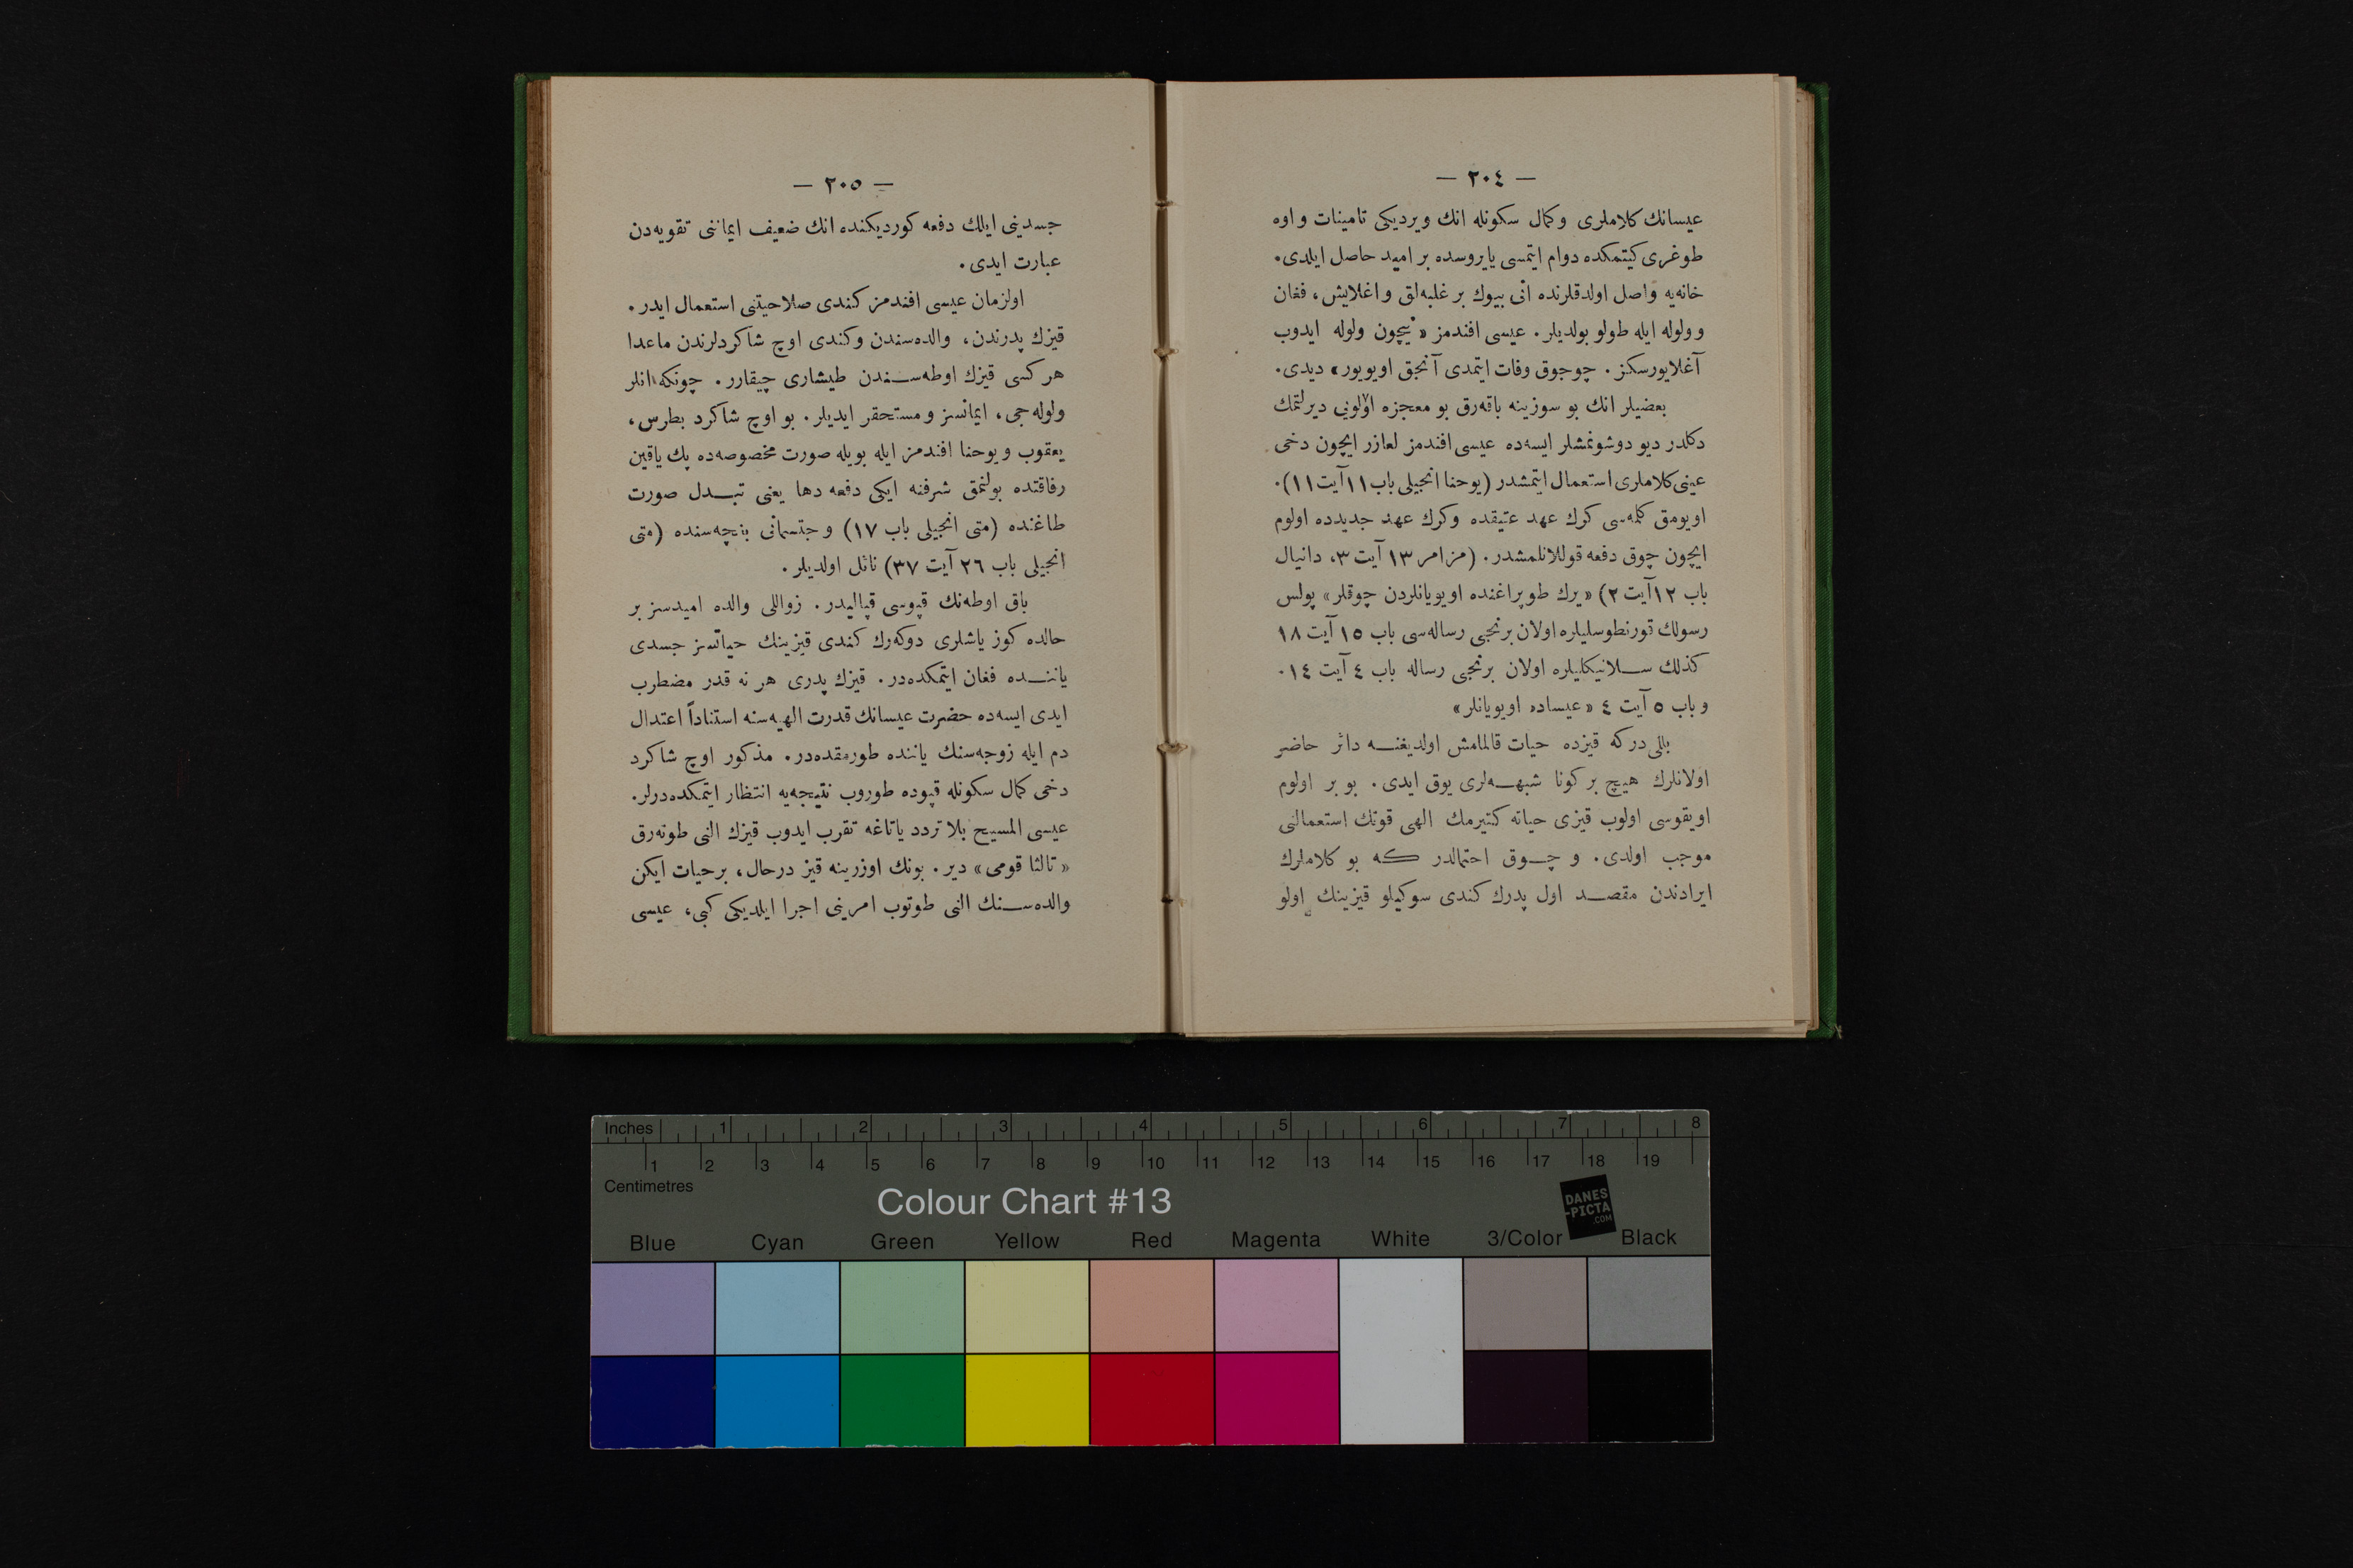 — ٢٠٤ —
عیسانك كلاملری وكمال سكونله انك ویردیكی تامینات و اوه
طوغری كیتمكده دوام ایتمسی یایروسده بر امید حاصل ایلدی.
خانه‌یه واصل اولدقلرنده انی بیوك بر غلبه‌لق و اغلایش، فغان
و ولوله ایله طولو بولدیلر. عیسی افندمز «نیچون ولوله ایدوب
آغلایورسكز. چوجوق وفات ایتمدی آنجق اویویور» دیدی.
بعضیلر انك بو سوزینه باقه‌رق بو معجزه اؤلونی دیرلتمك
دكلدر دیو دوشونمشلر ایسه‌ده عیسی افندمز لعازر ایچون دخی
عینی كلاملری استعمال ایتمشدر (یوحنا انجیلی باب ١١ آیت ١١).
اویومق كلمه‌سی كرك عهد عتیقده وكرك عهد جدیدده اولوم
ایچون چوق دفعه قوللانلمشدر. (مزامر ١٣ آیت ٣، دانیال
باب ١٢ آیت ٢) «یرك طوپراغنده اویویانلردن چوقلر» پولس
رسولك قورنطوسلیلره اولان برنجی رساله‌سی باب ١٥ آیت ١٨
كذلك سلانیكلیلره اولان برنجی رساله باب ٤ آیت ١٤.
و باب ٥ آیت ٤ «عیساده اویویانلر»
بللی‌دركه قیزده حیات قالمامش اولدیغنه دائر حاضر
اولانلرك هیچ بر كونا شبهه‌لری یوق ایدی. بو بر اولوم
اویقوسی اولوب قیزی حیاته كتیرمك الهی قوتك استعمالنی
موجب اولدی. و چوق احتمالدر كه بو كلاملرك
ایرادندن مقصد اول پدرك كندی سوكیلو قیزینك اولو
— ٢٠٥ —
جسدینی ایلك دفعه كوردیكنده انك ضعیف ایماننی تقویه‌دن
عبارت ایدی.
اولزمان عیسی افندمز كندی صلاحیتنی استعمال ایدر.
قیزك پدرندن، والده‌سندن وكندی اوچ شاكردلرندن ماعدا
هر كسی قیزك اوطه‌سندن طیشاری چیقارر. چونكه انلر
ولوله‌جی، ایمانسز و مستحقر ایدیلر. بو اوچ شاكرد بطرس،
یعقوب و یوحنا افندمز ایله بویله صورت مخصوصه‌ده پك یاقین
رفاقتده بولنمق شرفنه ایكی دفعه دها یعنی تبدل صورت
طاغنده (متی انجیلی باب ١٧) و جتسمانی باغچه‌سنده (متی
انجیلی باب ٢٦ آیت ٣٧) نائل اولدیلر.
باق اوطه‌نك قپوسی قپالیدر. زواللی والده امیدسز بر
حالده كوز یاشلری دوكه‌رك كندی قیزینك حیاتسز جسدی
یاننده فغان ایتمكده‌در. قیزك پدری هر نه قدر مضطرب
ایدی ایسه‌ده حضرت عیسانك قدرت الهیه‌سنه استناداً اعتدال
دم ایله زوجه‌سنك یاننده طورمقده‌در. مذكور اوچ شاكرد
دخی كمال سكونله قپوده طوروب نتیجه‌یه انتظار ایتمكده‌درلر.
عیسی المسیح بلا تردد یاتاغه تقرب ایدوب قیزك النی طوته‌رق
«تالثا قومی» دیر. بونك اوزرینه قیز درحال، برحیات ایكن
والده‌سنك النی طوتوب امرینی اجرا ایلدیكی كبی، عیسی
Inches 1 2 3 4 5 6 7 8
1 2 3 4 5 6 7 8 9 10 11 12 13 14 15 16 17 18 19
Centimetres
Colour Chart #13
DANES
-PICTA
.COM
Blue Cyan Green Yellow Red Magenta White 3/Color Black